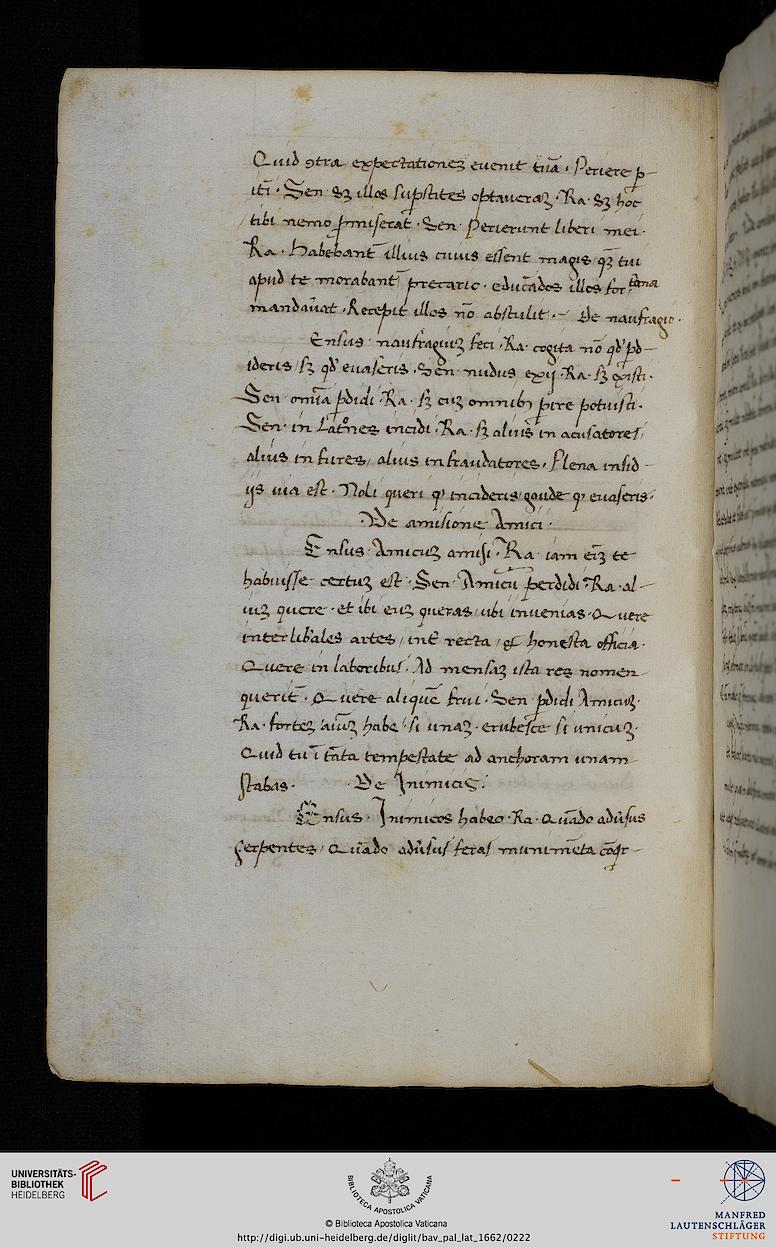 Quid ꝯtra expectationeʒ euenit tuā. Periere ꝑ-
iti. Sen. Sʒ illos suꝑstites optaueraʒ. Ra. Sʒ hoc
tibi nemo ꝓmiserat. Sen. Perierunt liberi mei.
Ra. Habebant illius cuius essent magis qʒ tui
apud te morabant̄ precario. educados illos for tuna
mandau̅at. Recepit illos nō abstulit. De naufragio.
Ensus. naufragiuʒ feci. Ra. cogita nō qd' ꝑd-
ideris, sʒ qd' euaseris. Sen. nudus exij. Ra. sʒ existi.
Sen. omīa ꝑdidi. Ra. sʒ cuʒ omnibꝫ ꝑire potuisti.
Sen. in Lat°nes incidi. Ra. sʒ alius in acusatores,
alius in fures, alius in fraudatores. Plena insid-
ijs uia est. Noli queri ꝙ incideris, gaude ꝙ euaseris.
De amisione Amici.
Ensus. Amicuʒ amisi. Ra. iam eūʒ te
habuisse certuʒ est. Sen. Amicū perdidi. Ra. al-
iuʒ quere. et ibi euʒ queras, ubi inuenias. Quere
inter lib'ales artes, int̄ recta, & honesta officia.
Quere in laboribus. Ad mensaʒ ista res nomen
querit̄. Quere aliquē frui. Sen. ꝑdidi Amicuʒ.
Ra. forteʒ aīuʒ habe, si unaʒ. erubesce si unicuʒ.
Quid tu ī tāta tempestate ad anchoram unam
stabas. De Inimicis.
Ensus. Inimicos habeo. Ra. Quādo adu̅sus
serpentes, Quādo adu̅sus feras munimēta cōqr-
UNIVERSITÄTS-
BIBLIOTHEK
HEIDELBERG
BIBLIOTECA APOSTOLICA VATICANA
© Biblioteca Apostolica Vaticana
http://digi.ub.uni-heidelberg.de/diglit/bav_pal_lat_1662/0222
MANFRED
LAUTENSCHLÄGER
STIFTUNG